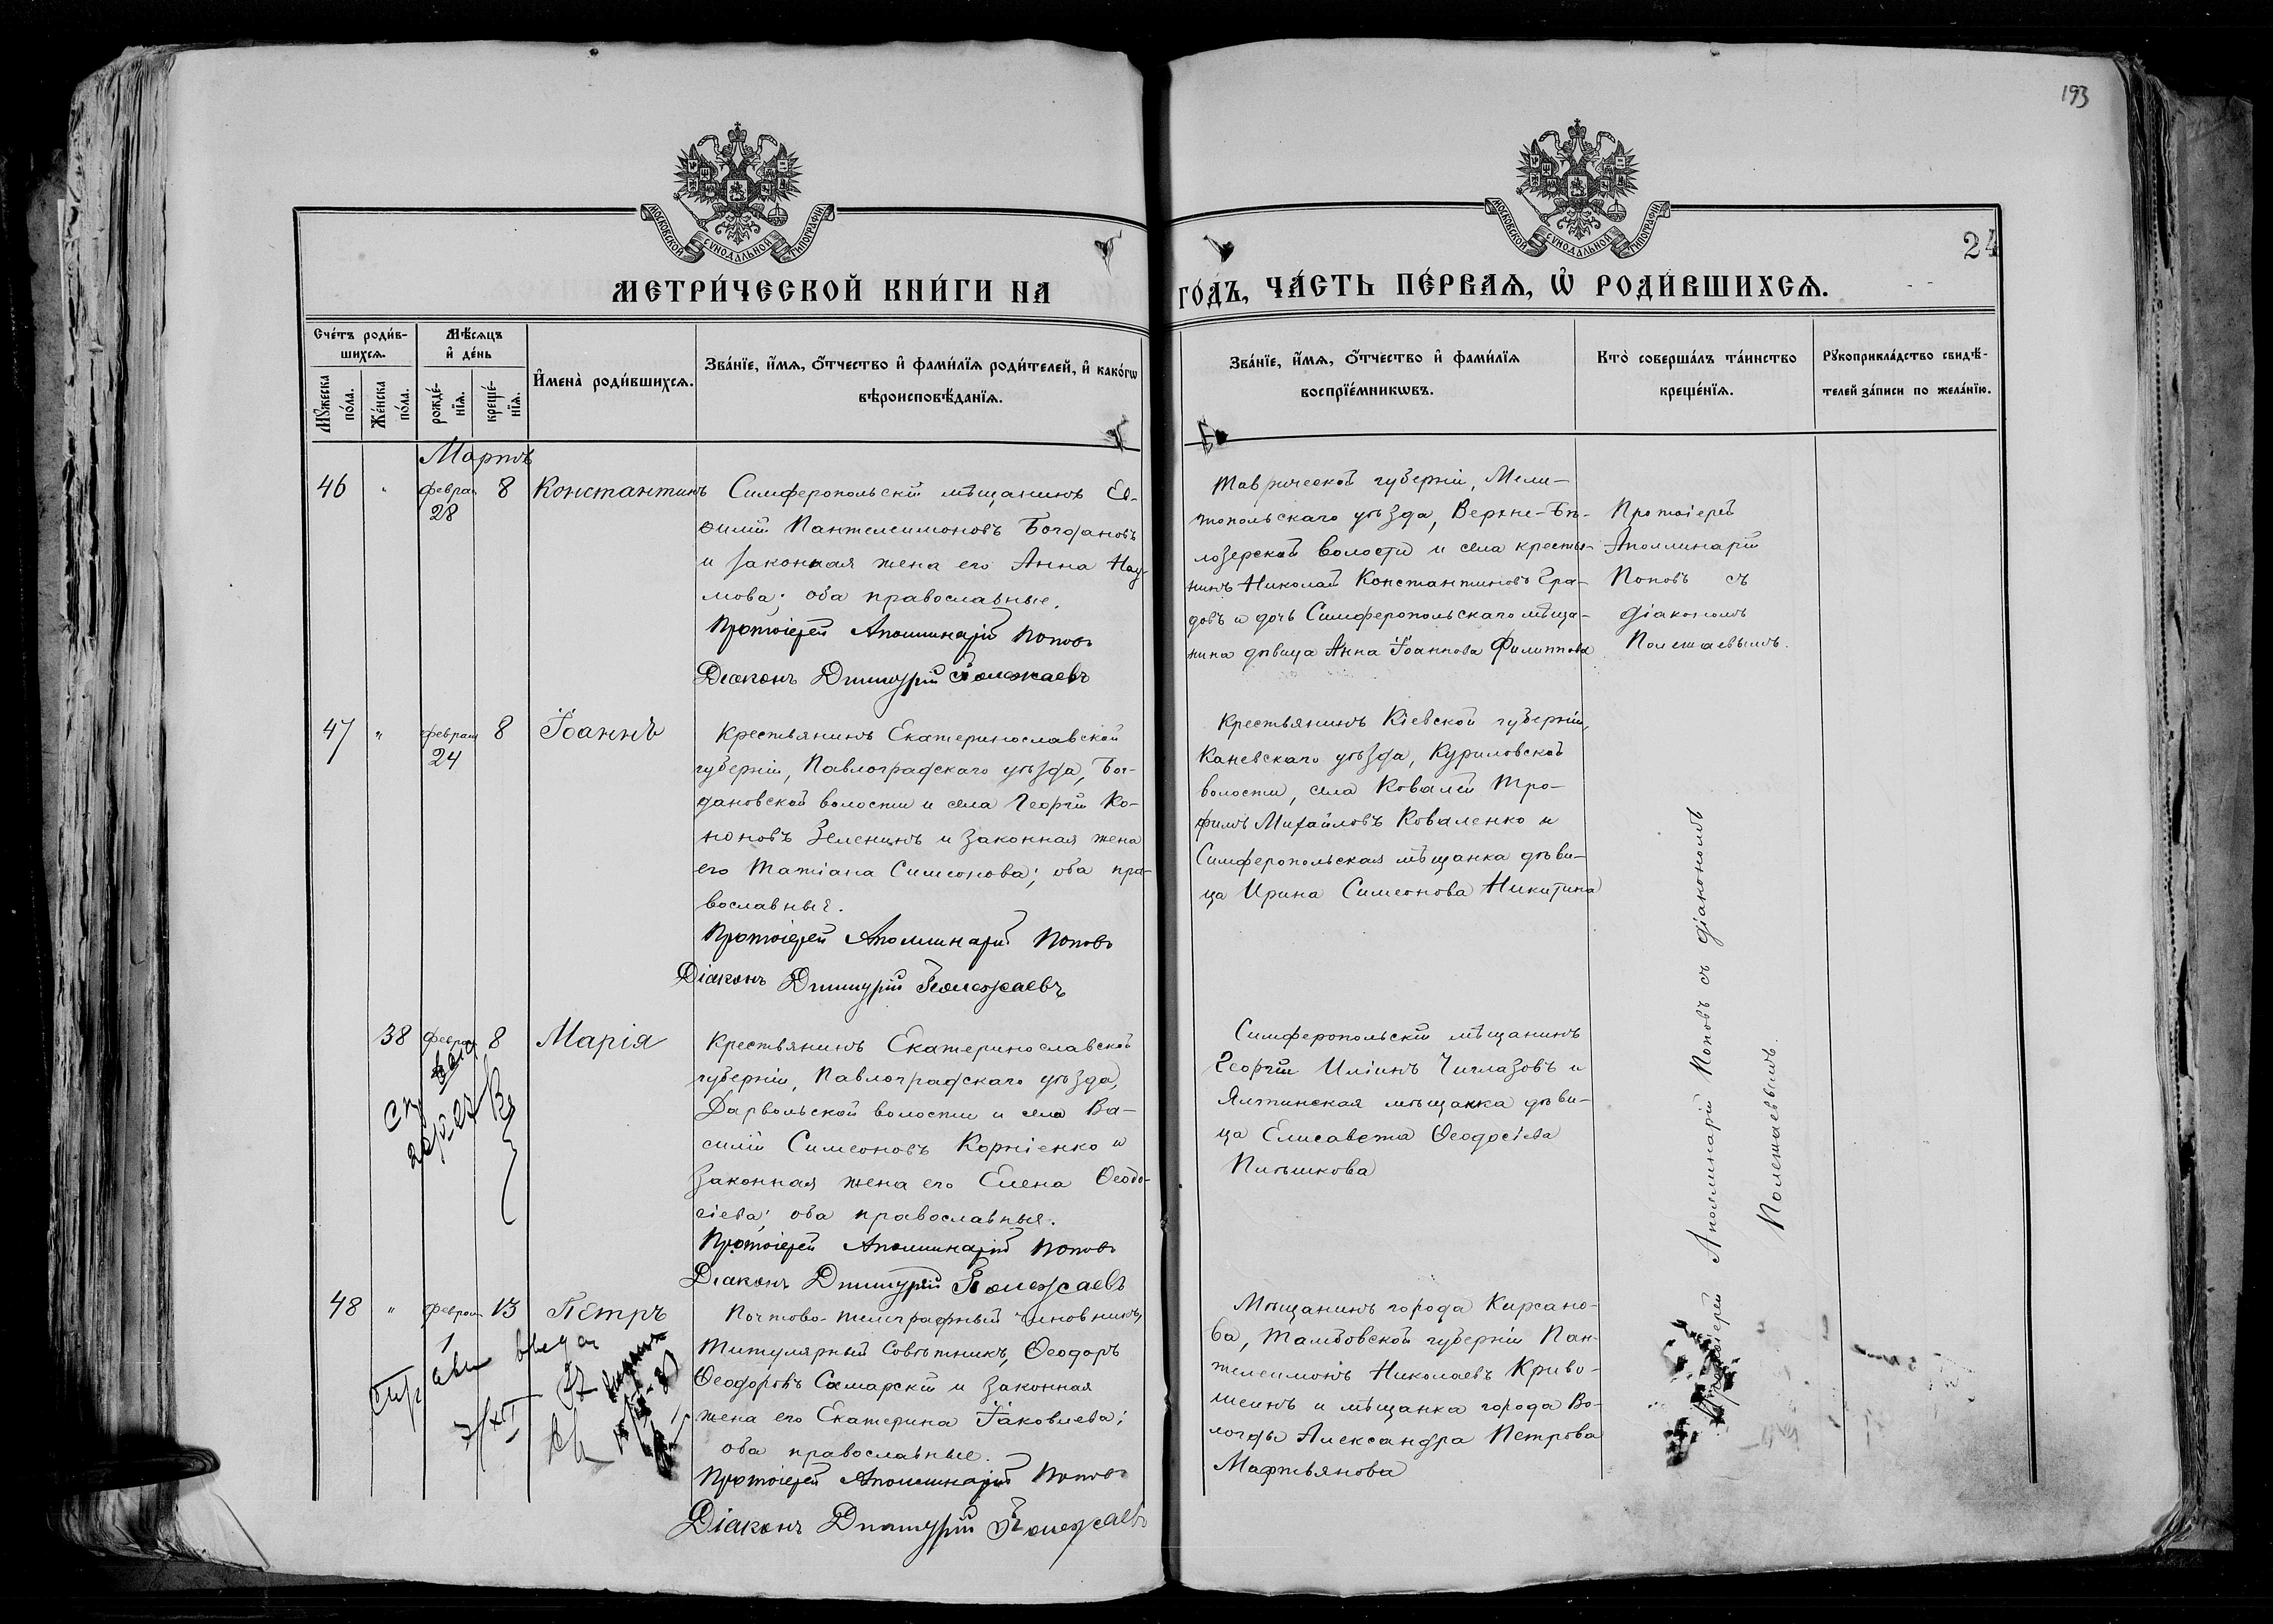 193
МОСКОВСКОЙ СѴНОДАЛЬНОЙ ТИПОГРАФІИ
МОСКОВСКОЙ СѴНОДАЛЬНОЙ ТИПОГРАФІИ
24
МЕТРИ́ЧЕСКОЙ КНИ́ГИ НА
ГО́ДЪ, ЧА́СТЬ ПЕ́РВАѦ, Ѡ҆ РОДИ́ВШИХСѦ.
Сче́тъ роди́в-
шихсѧ.
Мꙋ́жеска
по́ла.
Же́нска
по́ла.
Мѣ́сѧцъ
и҆ де́нь
рожде́-
нїѧ.
креще́-
нїѧ.
И҆мена̀ роди́вшихсѧ.
Зва́нїе, и҆́мѧ, ѻ҆́тчество и҆ фами́лїѧ роди́телей, и҆ како́гѡ
вѣроисповѣ́данїѧ.
Зва́нїе, и҆́мѧ, ѻ҆́тчество и҆ фами́лїѧ
воспрїе́мникѡвъ.
Кто̀ соверша́лъ та́инство
креще́нїѧ.
Рꙋкоприкла́дство свидѣ́-
телей за́писи по жела́нїю.
Мартъ
46 " Феврал 28 8 Константинъ
Симферопольскій мѣщанинъ Ев-
ѳимій Пантелеимоновъ Богдановъ
и законная жена его Анна Нау-
мова; оба православные.
Протоіерей Аполлинарій Поповъ
Діаконъ Димитрій Полежаевъ
Таврической губерніи, Мели-
топольскаго уѣзда, Верхне-Бѣ-
лозерской волости и села крестья-
нинъ Николай Константиновъ Гра-
довъ и дочь Симферопольскаго мѣща-
нина дѣвица Анна Іоаннова Филиппова
Протоіерей
Аполлинарій
Поповъ съ
діакономъ
Полежаевымъ.
47 " Феврал 24 8 Іоаннъ
Крестьянинъ Екатеринославской
губерніи, Павлоградскаго уѣзда, Бог-
дановской волости и села Георгій Ко-
ноновъ Зеленинъ и законная жена
его Татіана Симеонова; оба пра-
вославные.
Протоіерей Аполлинарій Поповъ
Діаконъ Димитрій Полежаевъ
Крестьянинъ Кіевской губерніи,
Каневскаго уѣзда, Куриловской
волости, села Ковалей Тро-
фимъ Михайловъ Коваленко и
Симферопольская мѣщанка дѣви-
ца Ирина Симеонова Никитина
38 Феврал 8 Марія
Крестьянинъ Екатеринославской
губерніи, Павлоградскаго уѣзда,
волости и села Ва-
силій Симеоновъ Корніенко и
законная жена его Елена Ѳеодо-
сіева; оба православные.
Протоіерей Аполлинарій Поповъ
Діаконъ Димитрій Полежаевъ
Симферопольскій мѣщанинъ
Георгій Иліинъ Чиглазовъ и
Ялтинская мѣщанка дѣви-
ца Елисавета Ѳеодосіева
Пимышкова
Протоіерей Аполлинарій Поповъ съ діакономъ
Полежаевымъ.
48 " Феврал 1 13 Петръ
Почтово-телеграфный чиновникъ,
Титулярный Совѣтникъ, Ѳеодоръ
Ѳеодоровъ Самарскій и законная
жена его Екатерина Іаковлева;
оба православные.
Протоіерей Аполлинарій Поповъ
Діаконъ Димитрій Полежаевъ
Мѣщанинъ города Кирсано-
ва, Тамбовской губерніи Пан-
телеимонъ Николаевъ Криво-
шеинъ и мѣщанка города Во-
логды Александра Петрова
Мартьянова